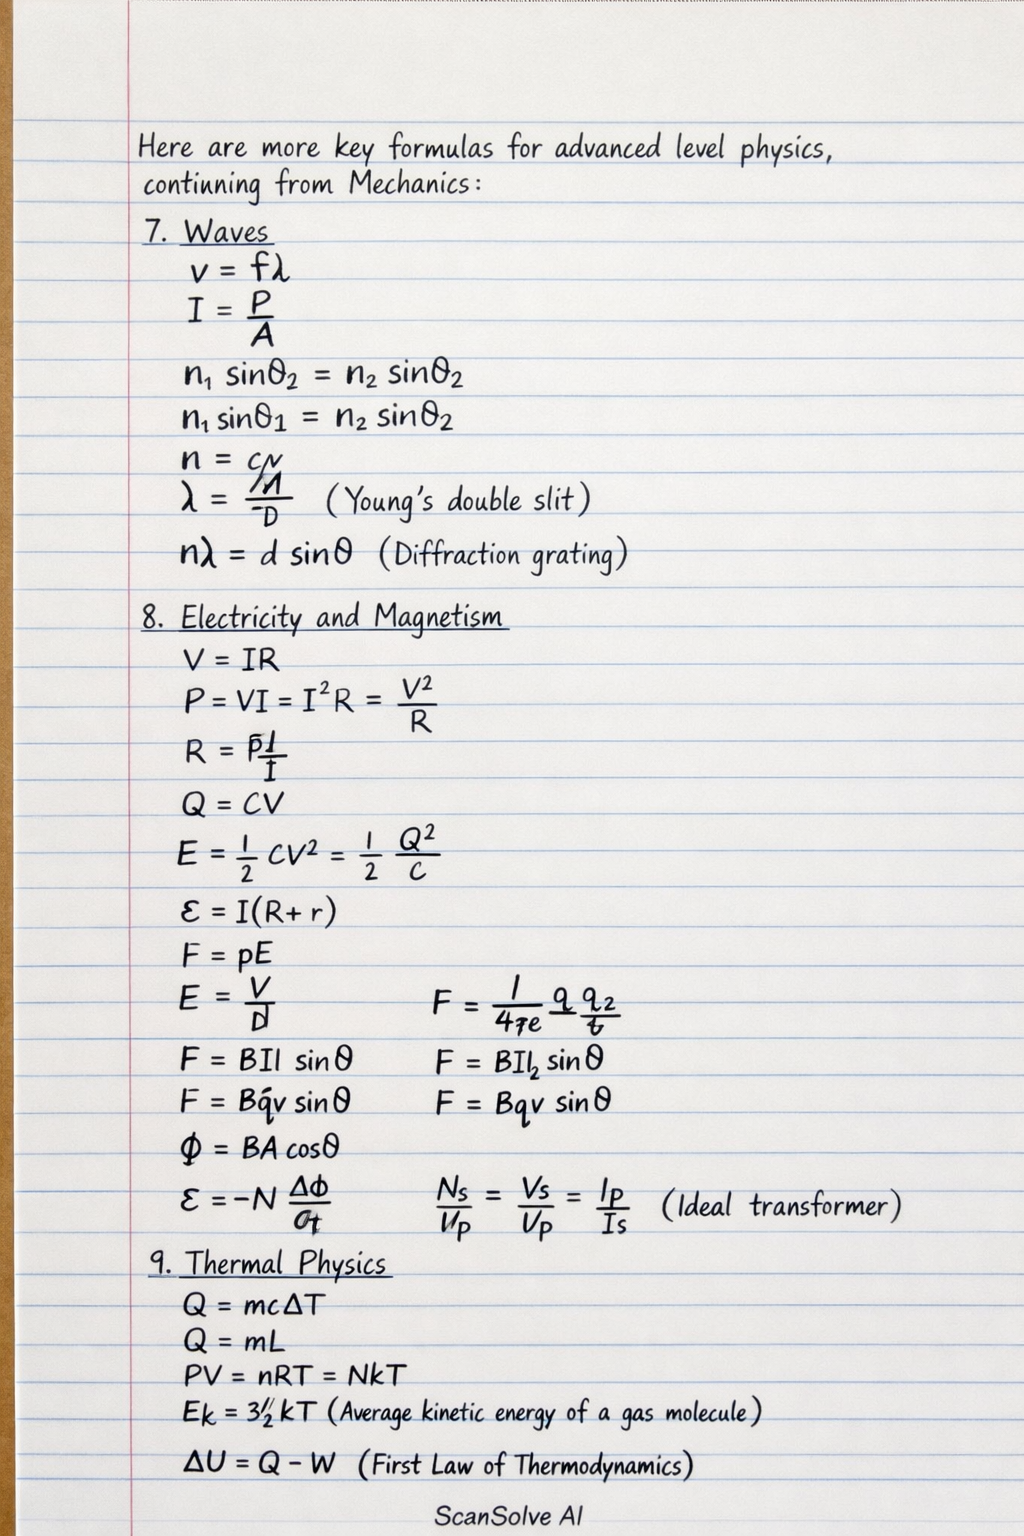 Here are more key formulas for advanced level physics,
contiunning from Mechanics:
7. Waves
v = fλ
I = P/A
n₁ sinθ₂ = n₂ sinθ₂
n₁ sinθ1 = n₂ sinθ₂
n =
λ = (Young's double slit)
nλ = d sinθ (Diffraction grating)
8. Electricity and Magnetism
V = IR
P = VI = I²R = V²/R
R =
Q = CV
E = 1/2 CV² = 1/2 Q²/C
ε = I(R+ r)
F = pE
E = V/D
F =
F = BIl sinθ
F = BIl₂ sinθ
F = Bqv sinθ
F = Bqv sinθ
Φ = BA cosθ
ε = -N ΔΦ/
Ns/Vp = Vs/Vp = Ip/Is (Ideal transformer)
9. Thermal Physics
Q = mcΔT
Q = mL
PV = nRT = NkT
Ek = 3/2 kT (Average kinetic energy of a gas molecule)
ΔU = Q - W (First Law of Thermodynamics)
ScanSolve AI